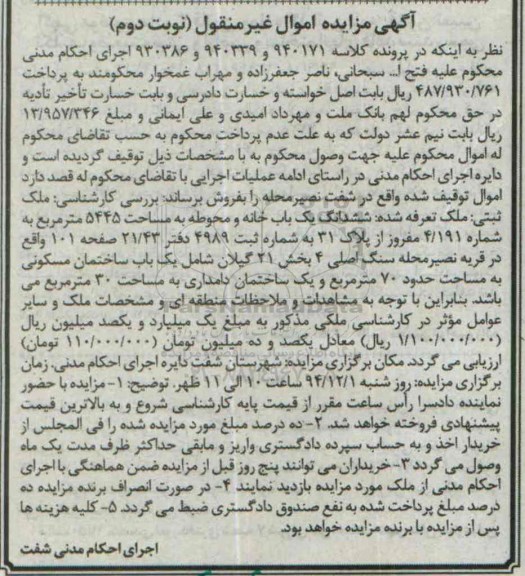 آگهی مزایده اموال غیرمنقول (نوبت دوم)
نظر به اینکه در پرونده کلاسه ۹۴۰۱۷۱ و ۹۴۰۳۳۹ و ۹۳۰۳۸۶ اجرای احکام مدنی
محکوم علیه فتح ا... سبحانی، ناصر جعفرزاده و مهراب غمخوار محکومند به پرداخت
۴۸۷/۹۳۰/۷۶۱ ریال بابت اصل خواسته و خسارت دادرسی و بابت خسارت تأخیر تأدیه
در حق محکوم لهم بانک ملت و مهرداد امیدی و علی ایمانی و مبلغ ۱۳/۹۵۷/۳۴۶
ریال بابت نیم عشر دولت که به علت عدم پرداخت محکوم به حسب تقاضای محکوم
له اموال محکوم علیه جهت وصول محکوم به با مشخصات ذیل توقیف گردیده است و
دایره اجرای احکام مدنی در راستای ادامه عملیات اجرایی با تقاضای محکوم له قصد دارد
اموال توقیف شده واقع در شفت نصیرمحله را بفروش برساند: بررسی کارشناسی: ملک
ثبتی: ملک تعرفه شده: ششدانگ یک باب خانه و محوطه به مساحت ۵۴۴۵ مترمربع به
شماره ۴/۱۹۱ مفروز از پلاک ۳۱ به شماره ثبت ۴۹۸۹ دفتر ۲۱/۴۳ صفحه ۱۰۱ واقع
در قریه نصیرمحله سنگ اصلی ۴ بخش ۲۱ گیلان شامل یک باب ساختمان مسکونی
به مساحت حدود ۷۰ مترمربع و یک ساختمان دامداری به مساحت ۳۰ مترمربع می
باشد. بنابراین با توجه به مشاهدات و ملاحظات منطقه ای و مشخصات ملک و سایر
عوامل مؤثر در کارشناسی ملکی مذکور به مبلغ یک میلیارد و یکصد میلیون ریال
(۱/۱۰۰/۰۰۰/۰۰۰ ریال) معادل یکصد و ده میلیون تومان (۱۱۰/۰۰۰/۰۰۰ تومان)
ارزیابی می گردد. مکان برگزاری مزایده: شهرستان شفت دایره اجرای احکام مدنی. زمان
برگزاری مزایده: روز شنبه ۹۴/۱۲/۱ ساعت ۱۰ الی ۱۱ ظهر. توضیح: ۱- مزایده با حضور
نماینده دادسرا رأس ساعت مقرر از قیمت پایه کارشناسی شروع و به بالاترین قیمت
پیشنهادی فروخته خواهد شد. ۲- ده درصد مبلغ مورد مزایده شده را فی المجلس از
خریدار اخذ و به حساب سپرده دادگستری واریز و مابقی حداکثر ظرف مدت یک ماه
وصول می گردد ۳- خریداران می توانند پنج روز قبل از مزایده ضمن هماهنگی با اجرای
احکام مدنی از ملک مورد مزایده بازدید نمایند ۴- در صورت انصراف برنده مزایده ده
درصد مبلغ پرداخت شده به نفع صندوق دادگستری ضبط می گردد. ۵- کلیه هزینه ها
پس از مزایده با برنده مزایده خواهد بود.
اجرای احکام مدنی شفت